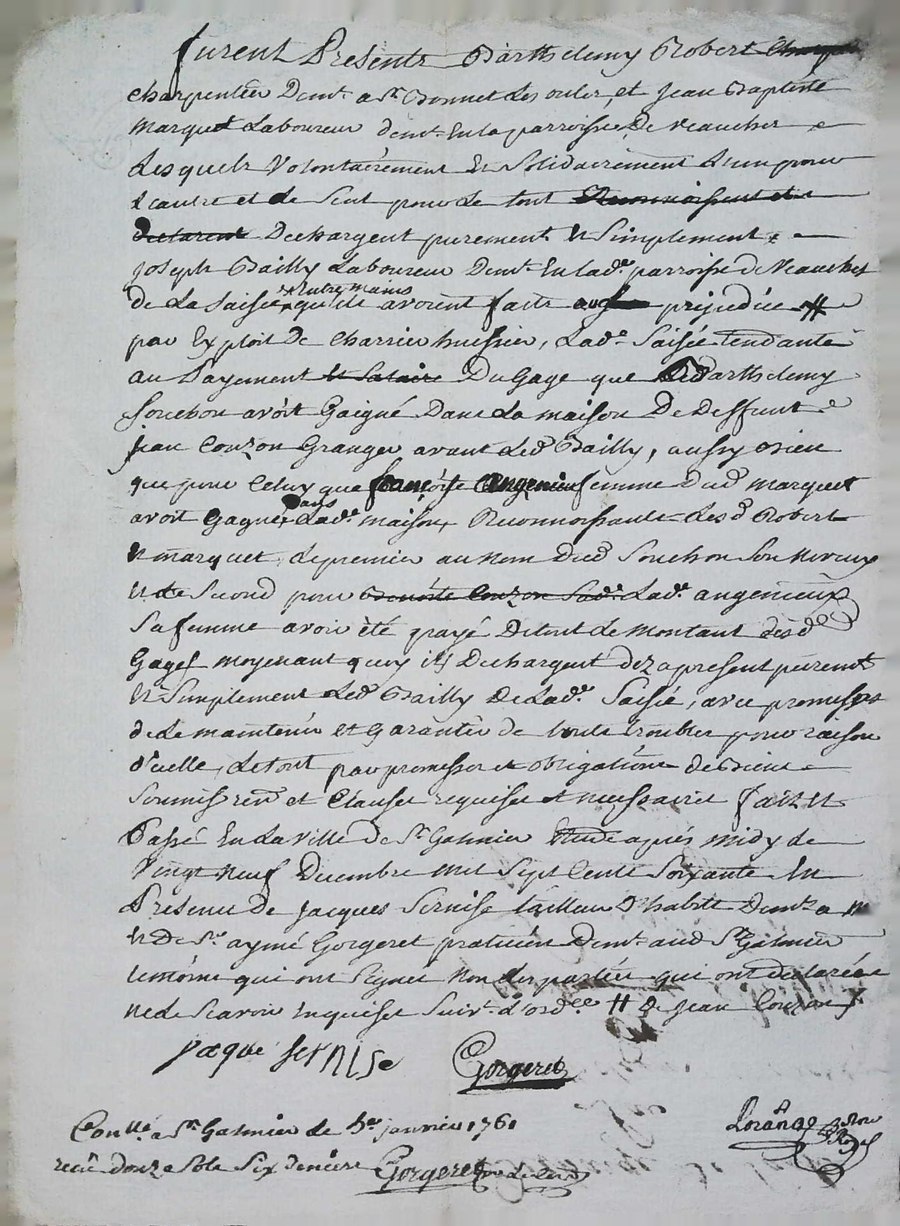 furent Presents Barthelemy Robert
charpentier Demt. a St. Bonnet Les oules, et jean Baptiste
marquet Laboureur demt. En la parroisse De veauches
Lesquels volontairement Et Solidairement L'un pour
L'autre et de Seul pour Le tout Reconnoissent et
declarent Dechargent purement Et Simplement
joseph Bailly Laboureur Demt. En lad.e parroisse de veauches
de La Saisie Entre mains qu'ils avoient faits prejudice #
par Exploit De Charrier huissier, Lad.e Saisie tendante
au Payement et Salaire Du Gage que Led Barthelemy
Souchon avoit Gaigné Dans La maison De Deffunt
jean Couzon Granger avant Led Bailly, aussy Bien
que pour Celuy que françoise Angenieux femme dud marquet
avoit Gagné Dans Lad.e maison, Reconnoissants Lesd Robert
Et marquet, le premier au Nom Dud Souchon Son Neveux
Et le Second pour Benoiste Couzon Sad.e Lad.e angenieux
Sa femme avoir été payé De tout Le montant desd
Gages moyenant quoy ils Dechargent dez a present purem.t
Et Simplement Led Bailly De Lad.e Saisie, avec promesses
de Le maintenir et Garantir de toute troubles pour raison
d'icelle, Le tout par promesses et obligations de Biens
Soumissions et Clauses requises et necessaires fait Et
Passé En La ville de St. Galmier Etude après midy le
vingt Neuf Decembre mil Sept Cents Soixante En
Presence de jacques Sernise tailleur D'habits Demt. a
Et De Sr. aymé Gorgeret praticien Demt. aud St. Galmier
temoins qui ont Signé Non Les parties qui ont declarées
ne le Scavoir Enquises Suivt. d'ord.ce # De jean Couzon
jaque serNise Gorgeret
Contllé a St. Galmier le 5e janvier 1761 Lorange
recû douze Sols Six deniers Gorgeret